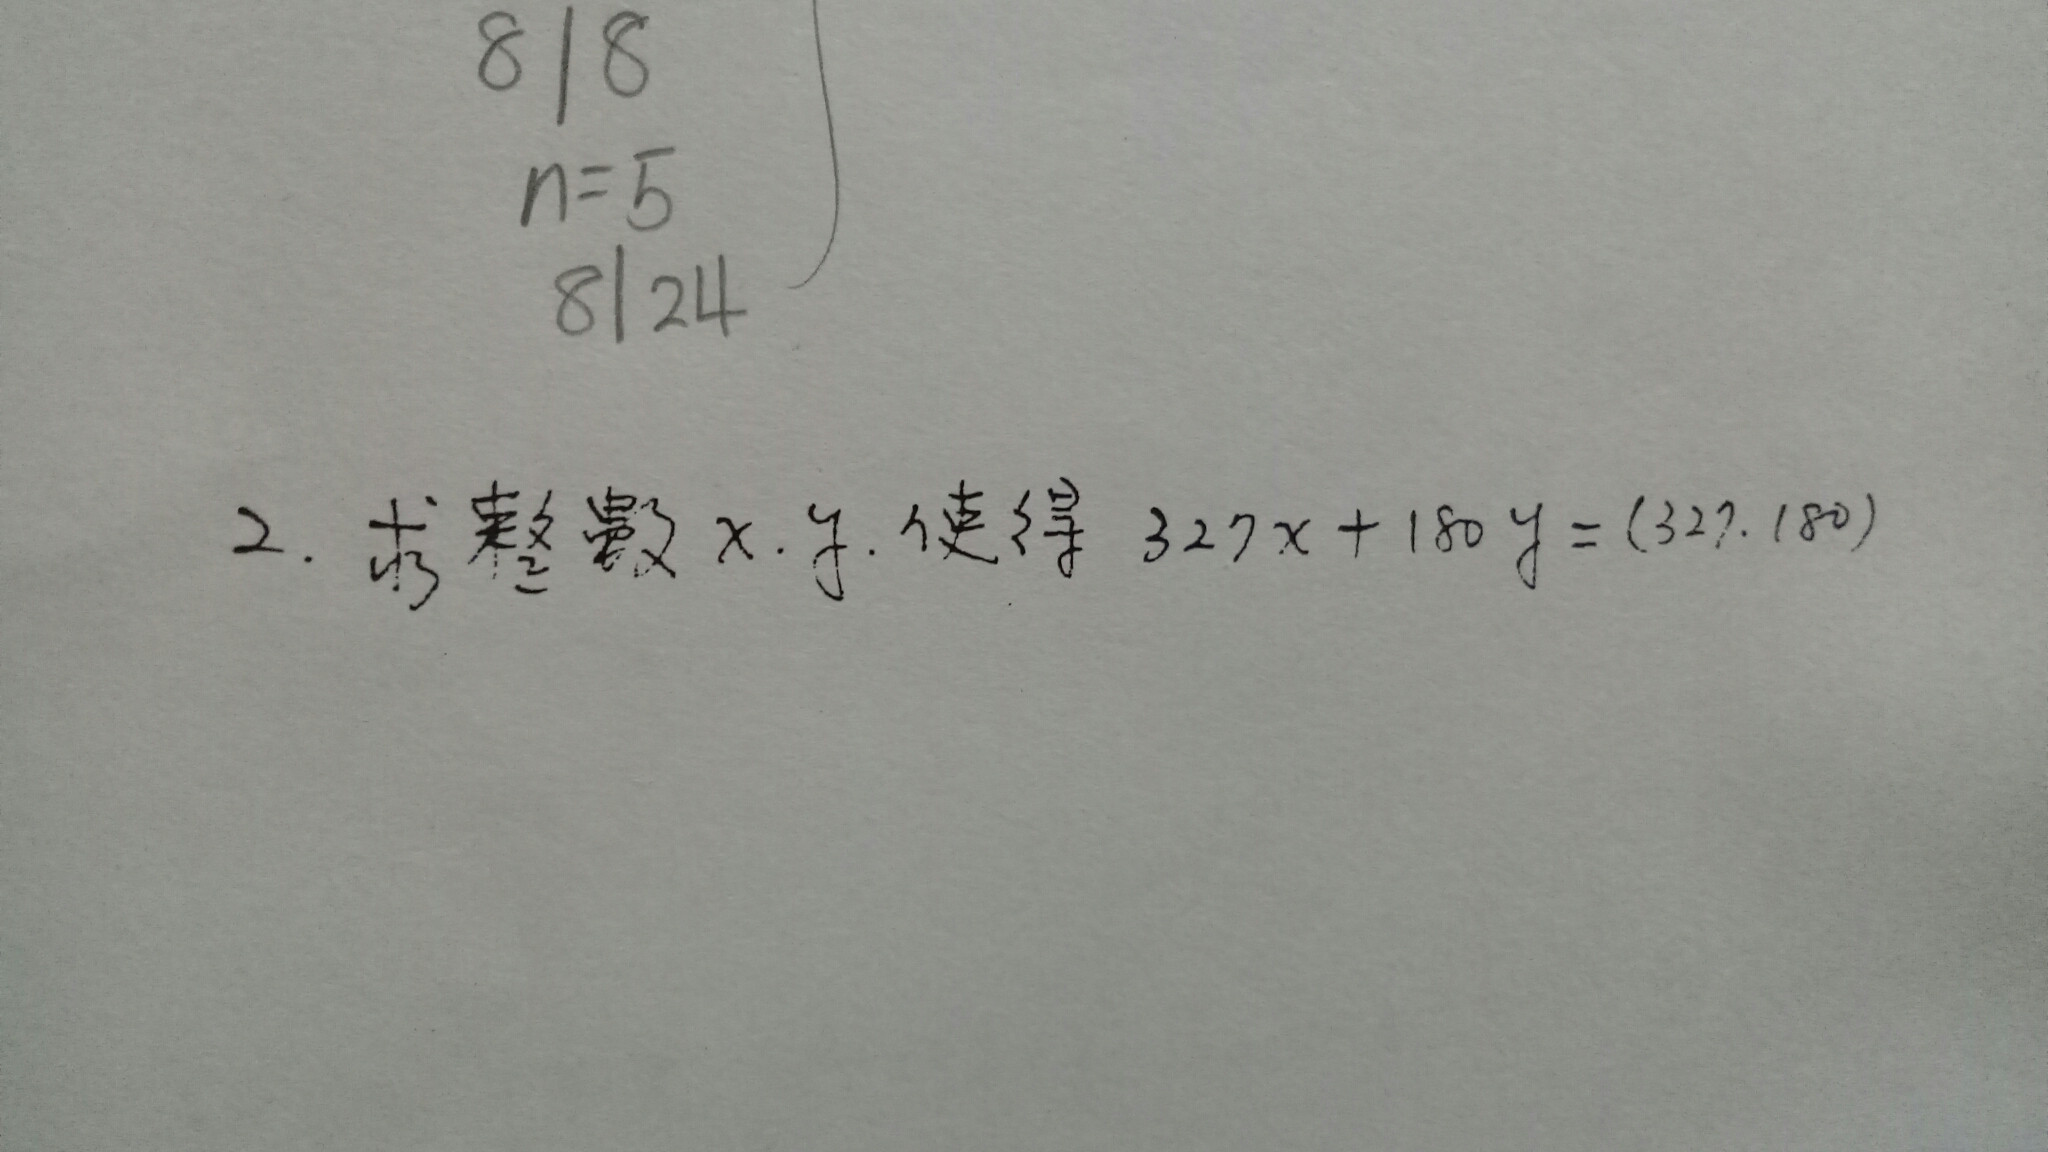 8|8
n=5
8|24
2. 求整數 x.y.使得 327x+180y=(327.180)